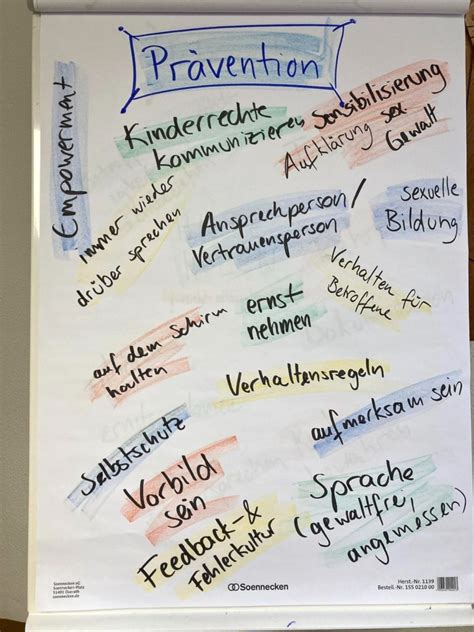 Prävention
Empowerment
Kinderrechte
kommunizieren
Sensibilisierung
Aufklärung sex
Gewalt
immer wieder
drüber sprechen
Ansprechperson/
Vertrauensperson
sexuelle
Bildung
Verhalten für
Betroffene
auf dem Schirm
halten
ernst
nehmen
Verhaltensregeln
aufmerksam sein
Selbstschutz
Vorbild
sein
Sprache
(gewaltfrei,
angemessen)
Feedback- &
Fehlerkultur
Soennecken eG
Soennecken-Platz
51491 Overath
soennecken.de
Soennecken
Herst.-Nr. 1139
Bestell.-Nr. 155 0210 00